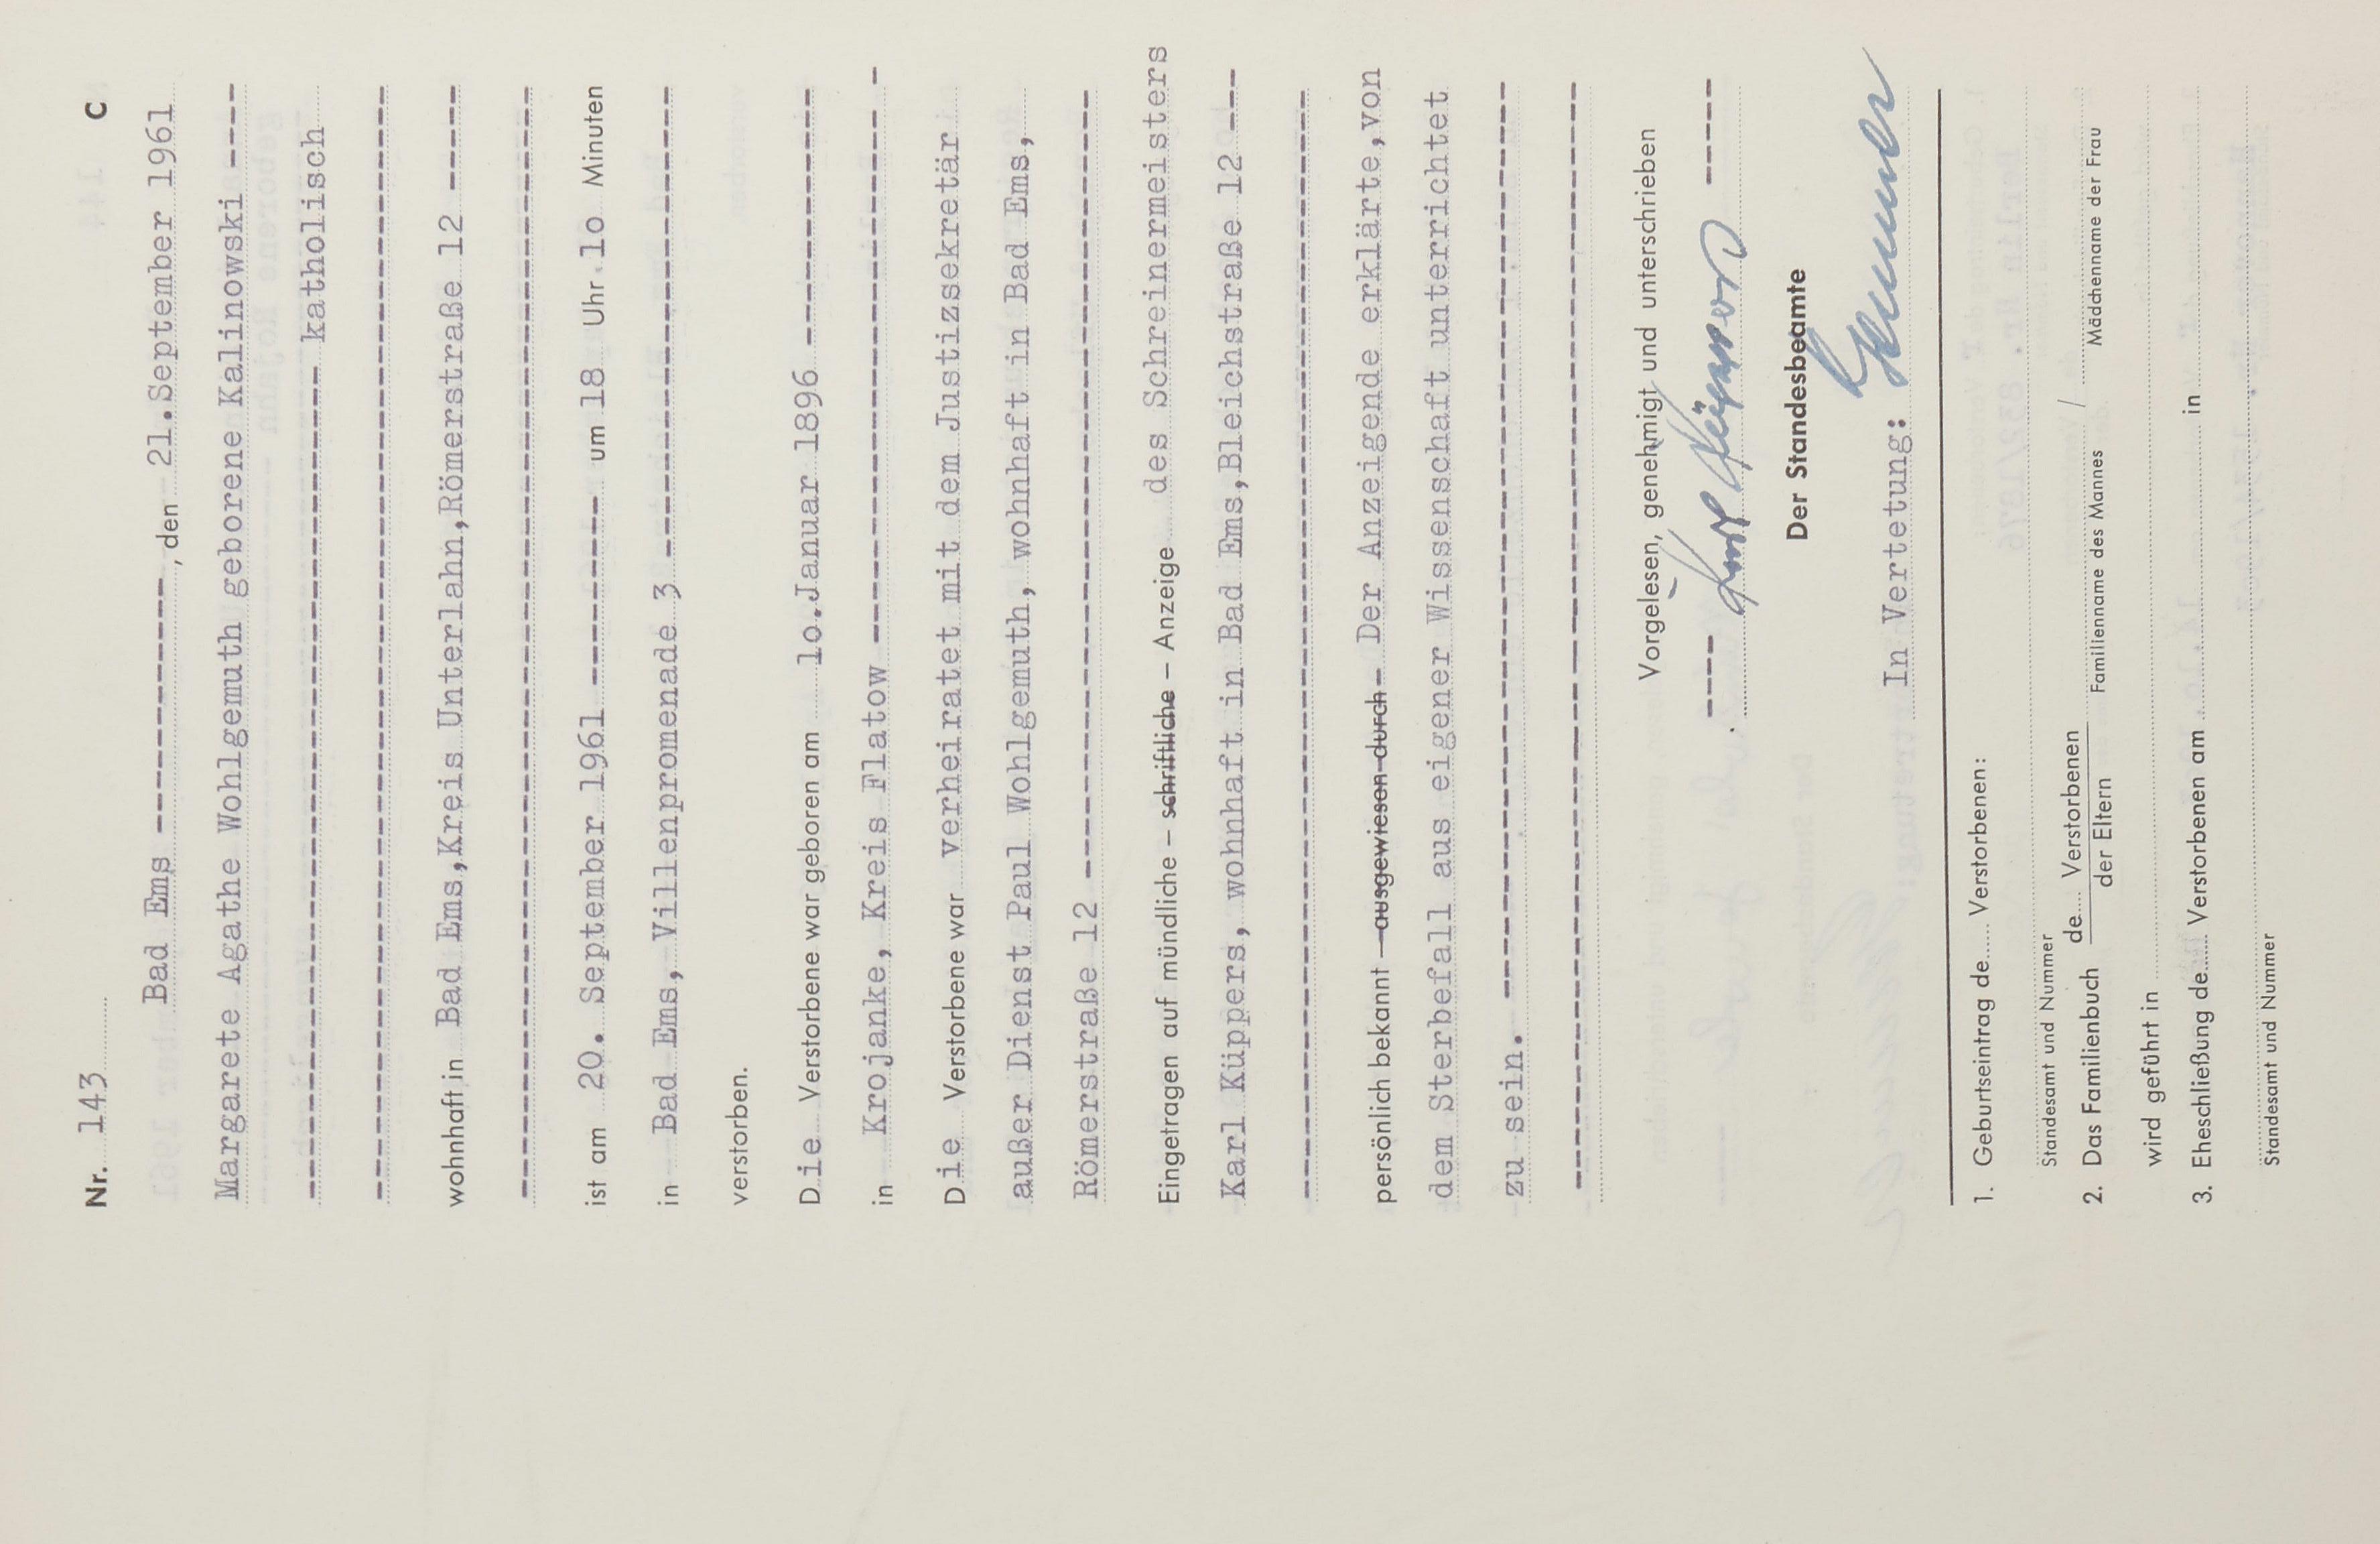 Nr. 143 C
Bad Ems ------------, den 21.September 1961
Margarete Agathe Wohlgemuth geborene Kalinowski ----
---------------------------------------- katholisch
-----------------------------------------------------
wohnhaft in Bad Ems,Kreis Unterlahn,Römerstraße 12 -----
-----------------------------------------------------
ist am 20. September 1961 --------- um 18 Uhr 10 Minuten
in Bad Ems, Villenpromenade 3 ----------------------
verstorben.
Die Verstorbene war geboren am 10.Januar 1896 ------------
in Krojanke, Kreis Flatow -------------------------- -
Die Verstorbene war verheiratet mit dem Justizsekretär
außer Dienst Paul Wohlgemuth, wohnhaft in Bad Ems,
Römerstraße 12 -------------------------------------
Eingetragen auf mündliche – schriftliche – Anzeige des Schreinermeisters
Karl Küppers, wohnhaft in Bad Ems,Bleichstraße 12 ---
-----------------------------------------------------
persönlich bekannt – ausgewiesen durch – Der Anzeigende erklärte,von
dem Sterbefall aus eigener Wissenschaft unterrichtet
zu sein. -------------------------------------------
-----------------------------------------------------
Vorgelesen, genehmigt und unterschrieben
---- Karl Küppers -----
Der Standesbeamte
In Vertetung:
1. Geburtseintrag de..... Verstorbenen:
Standesamt und Nummer
2. Das Familienbuch de.... Verstorbenen / 
der Eltern Familienname des Mannes Mädchenname der Frau
wird geführt in
3. Eheschließung de..... Verstorbenen am in
Standesamt und Nummer